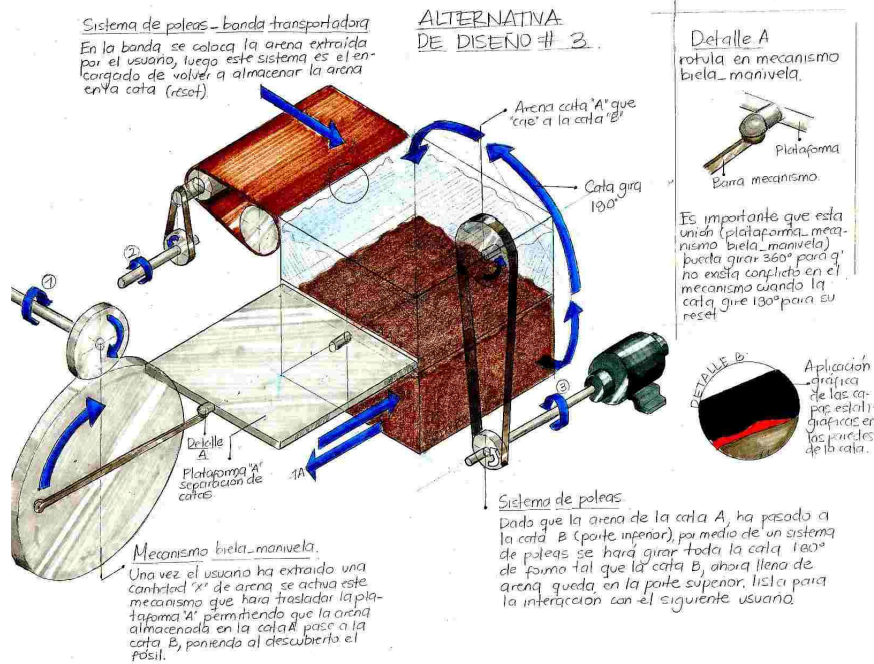 Sistema de poleas_banda transportadora
En la banda se coloca la arena extraida
por el usuario, luego este sistema es el en-
cargado de volver a almacenar la arena
en la cata (reset).
ALTERNATIVA
DE DISEÑO # 3.
Arena cata "A" que
"cae" a la cata "B"
Cata gira
180°
Detalle A
rotula en mecanismo
biela_manivela.
Plataforma
Barra mecanismo.
Es importante que esta
unión (plataforma_meca-
nismo biela_manivela)
pueda girar 360° para q'
no exista conflicto en el
mecanismo cuando la
cata gire 180° para su
reset
DETALLE B.
Aplicación
gráfica
de las ca-
pas estati-
gráficas en
las paredes
de la cata.
①
②
③
Detalle
A
Plataforma "A"
separación de
catas
1A
Mecanismo biela_manivela.
Una vez el usuario ha extraido una
cantidad "x" de arena se activa este
mecanismo que hara trasladar la pla-
taforma "A" permitiendo que la arena
almacenada en la cata A pase a la
cata B, poniendo al descubierto el
fósil.
Sistema de poleas.
Dado que la arena de la cata A, ha pasado a
la cata B (parte inferior), por medio de un sistema
de poleas se hará girar toda la cata 180°
de forma tal que la cata B, ahora llena de
arena queda, en la parte superior, lista para
la interacción con el siguiente usuario.